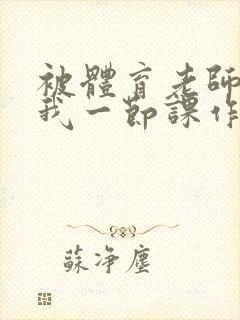 被體育老師
我一節課作
蘇淨塵